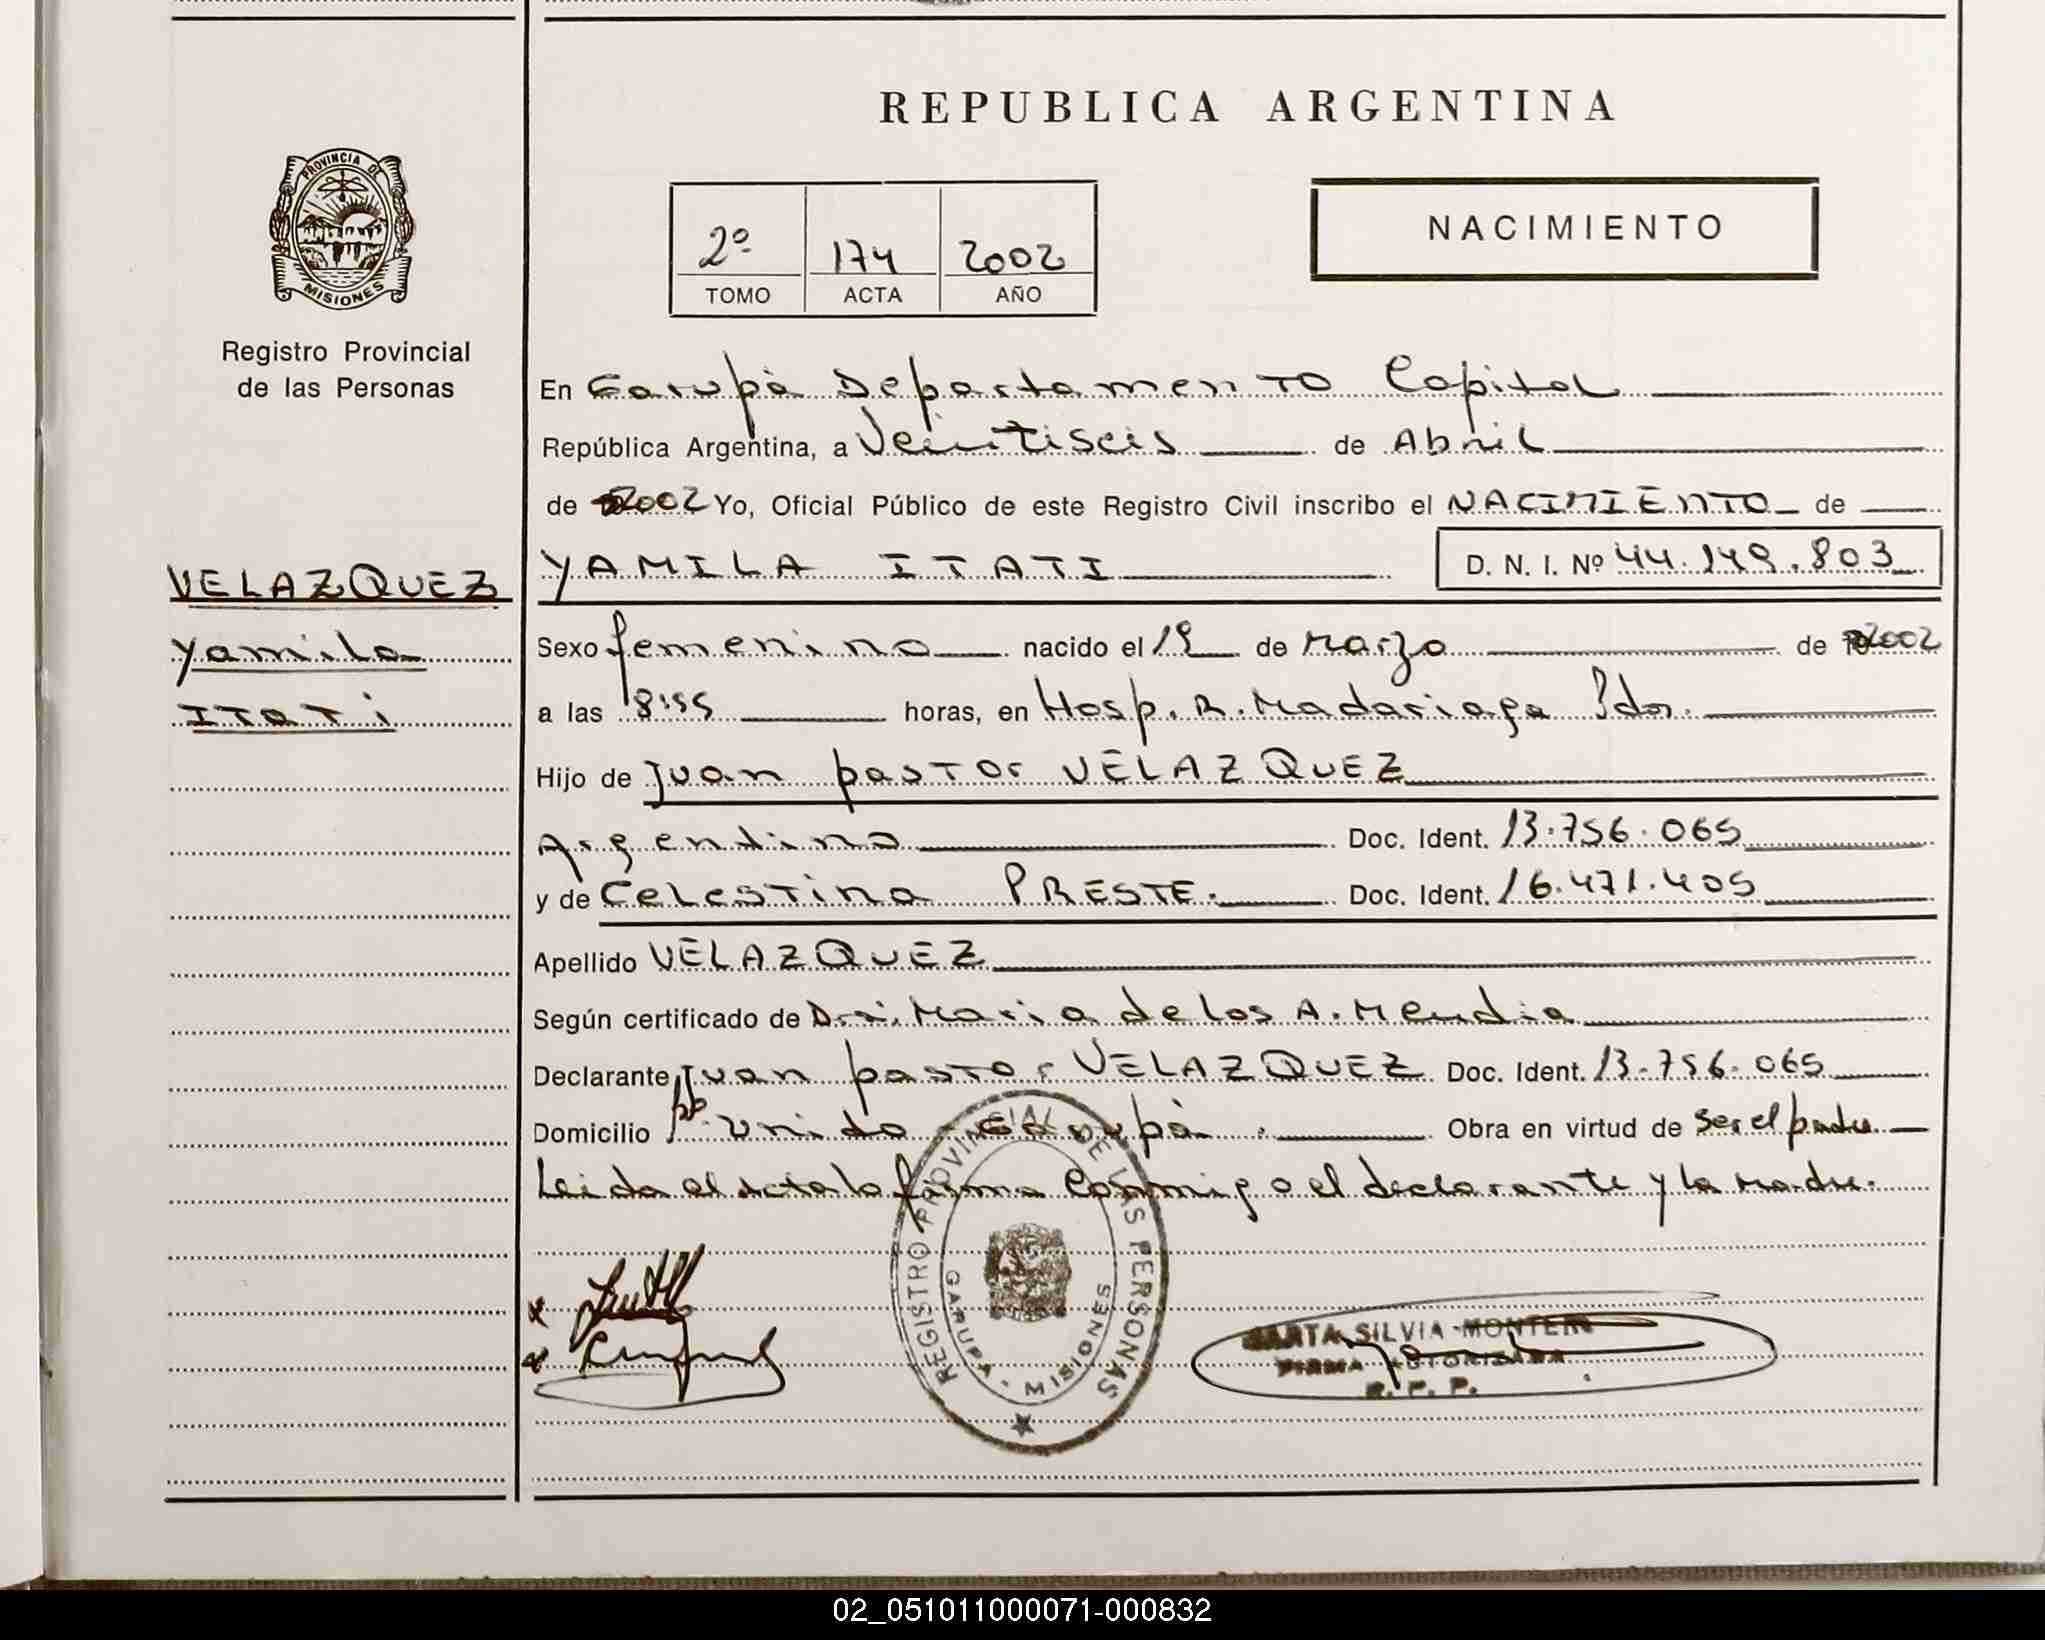 REPUBLICA ARGENTINA
PROVINCIA DE
MISIONES
Registro Provincial
de las Personas
2º 174 2002
TOMO ACTA AÑO
NACIMIENTO
En Garupà Departamento Capital
República Argentina, a Veintiseis de Abril
de 2002 Yo, Oficial Público de este Registro Civil inscribo el NACIMIENTO de
VELAZQUEZ
Yamila
Itati
YAMILA ITATI D. N. I. Nº 44.149.803
Sexo femenino nacido el 19 de Marzo de 2002
a las 8:55 horas, en Hosp. R. Madariaga Pdas.
Hijo de Juan pastor VELAZQUEZ
Argentino Doc. Ident. 13.756.065
y de Celestina PRESTE. Doc. Ident. 16.471.405
Apellido VELAZQUEZ
Según certificado de Dra. Maria de los A. Mendia
Declarante Juan pastor VELAZQUEZ Doc. Ident. 13.756.065
Domicilio Bº Unido Garupà. Obra en virtud de ser el padre
Leida el acta la firma conmigo el declarante y la madre.
REGISTRO PROVINCIAL DE LAS PERSONAS
GARUPA - MISIONES
MARTA SILVIA
FIRMA AUTORIZADA
R. P. P.
02_051011000071-000832